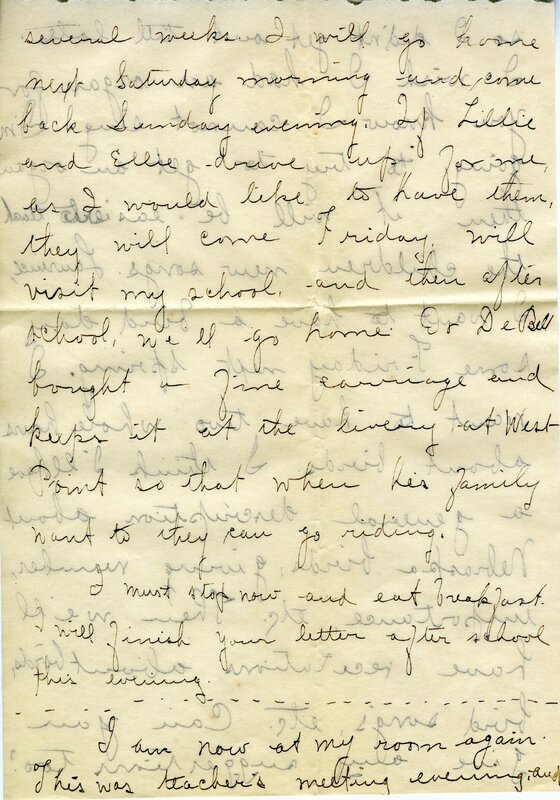 several weeks. I will go home
next Saturday morning and come
back Sunday evening. If Lillie
and Ellie drive up for me,
as I would like to have them,
they will come Friday, will
visit my school, and then after
school, we'll go home. Dr De Bell
bought a fine carriage and
keeps it at the livery at West
Point so that when his family
want to they can go riding.
I must stop now and eat breakfast.
I will finish your letter after school
this evening.
I am now at my room again.
This was teacher's meeting evening, and